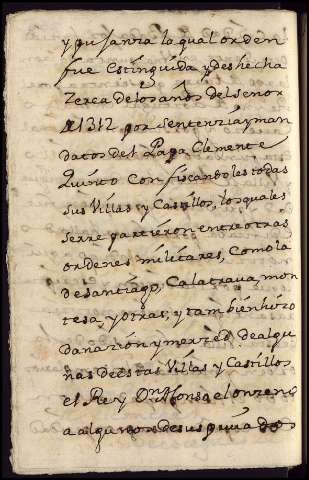 y pujanza la qual orden
fue estinguida y deshecha
zerca delos años del señor
d 1312 por sentenzia y man
datos del Papa Clemente
Quinto confiscandoles todas
sus Villas y Castillos, los quales
serre partieron entre otras
ordenes militares, como la
de santiago, Calatrava, mon
tesa, y otras; y tambien hizo
danazion y merzed de algu
ñas de estas Villas y Castillos
el Rey Dn Alfonso el onzeno
a algunos de sus privados